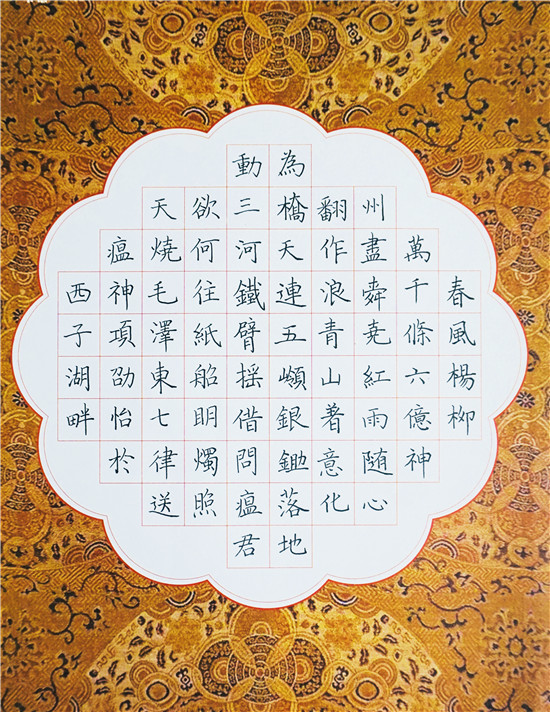 春風楊柳
萬千條六億神
州盡舜尭紅雨随心
翻作浪青山著意化
為橋天連五嶺銀鋤落地
動三河鐵臂摇借問瘟君
欲何往紙船明燭照
天燒毛澤東七律送
瘟神項劭怡於
西子湖畔